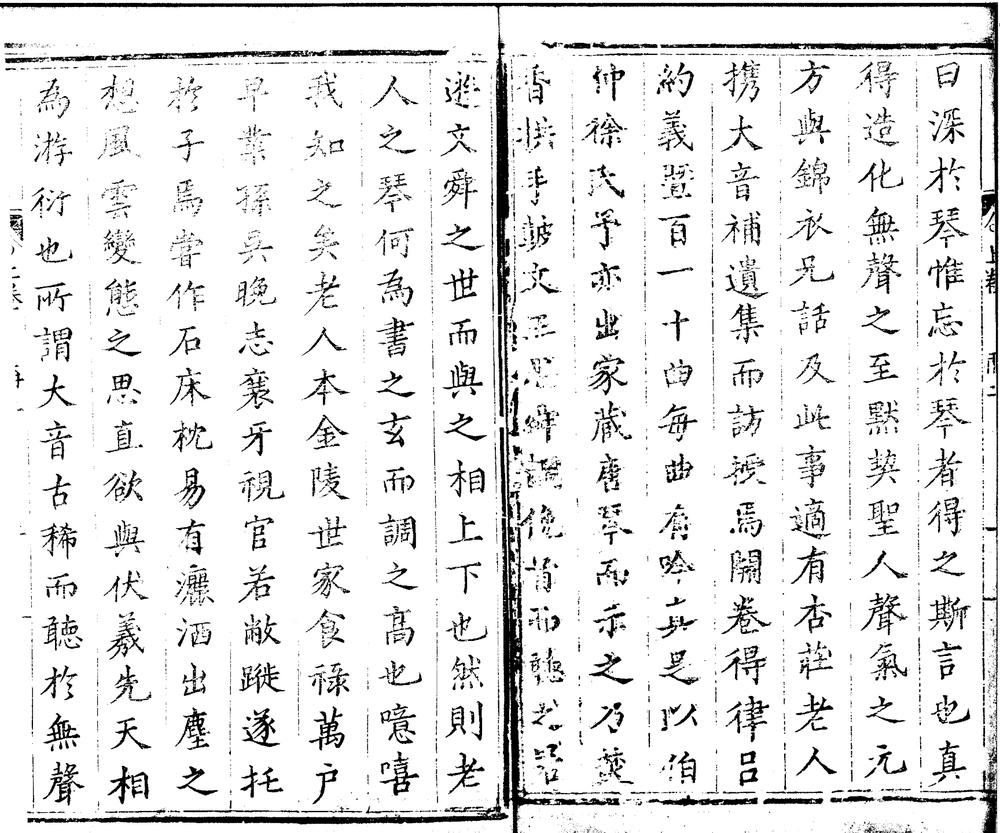 曰深於琴惟忘於琴者得之斯言也真
得造化無聲之至默契聖人聲氣之元
方與錦衣兄話及此事適有杏莊老人
携大音補遺集而訪授焉開卷得律呂
約義暨百一十曲每曲有吟真是以伯
仲徐氏予亦出家藏唐琴而示之乃焚
香撰手鼓文王思舜調俛首而聽
遊文舜之世而與之相上下也然則老
人之琴何為書之玄而調之高也噫嘻
我知之矣老人本金陵世家食祿萬户
早業孫吳晚志襄牙視官若敝蹝遂托
於子焉嘗作石床枕易有灑洒出塵之
想風雲變態之思直欲與伏羲先天相
為游衍也所謂大音古稀而聴於無聲